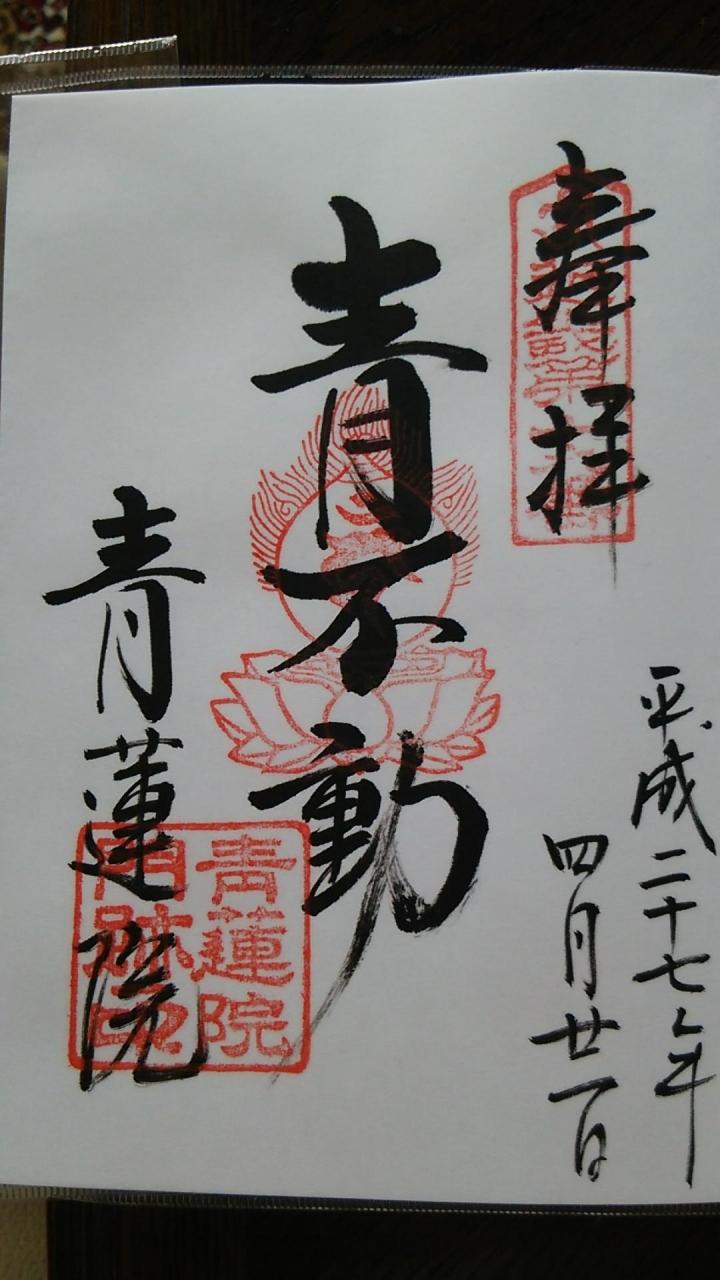 奉拝
平成二十七年
四月廿一日
青不動
青蓮院
青蓮院
門跡之印